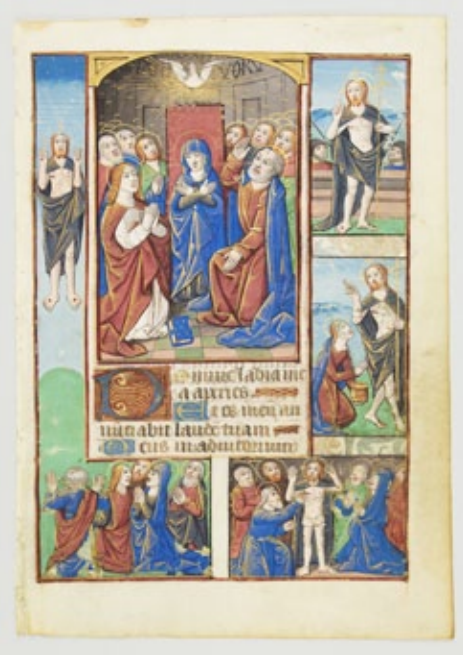 Domine labia me
a aperies
Et os meum an
nunciabit laudem tuam
Deus in adiutorium